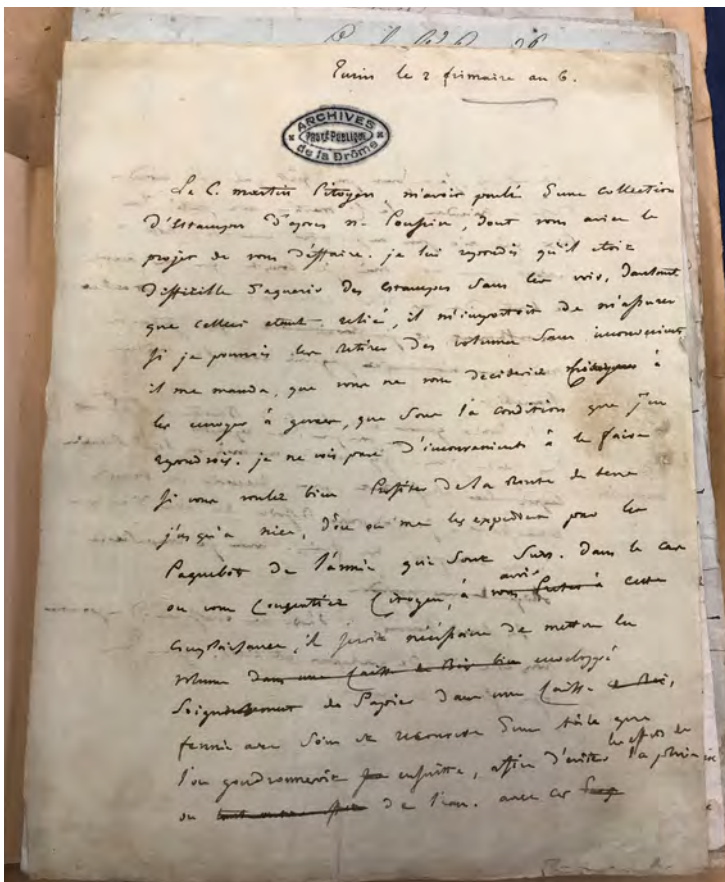 Turin le 2 frimaire an 6.
ARCHIVES
PROTÉ PUBLIQUE
de la Drôme
Le C. martin Citoyen, m'avoit parlé d'une collection
d'Estampes d'apres n. Poussin, dont vous aviez le
projet de vous deffaire. je lui repondis qu'il etoit
difficille d'aquerir des estampes sans les voir, dautant
que celles etant relié, il m'importoit de m'assurer
si je pourrois les retirer des volume sans inconvenient
il me manda, que vous ne vous decideriez à
les envoyer à genes, que sous la condition que j'en
repondrois. je ne vois point d'inconvenients à le faire
si vous voulez bien Profiter de la Route de terre
jusqu'a nice, d'ou on me les expediera par les
Paquebot de l'armée qui sont surs. dans le cas
ou vous Consentiriez Citoyen, à cette
Complaisance, il seroit nécessaire de mettre les
volume dans une Caisse de Bois bien enveloppé
Soigneusement de Papier dans une Caisse de Bois,
fermée avec soin et recouverte d'une toile que
l'on goudronneroit ensuitte, affin d'eviter les effets de la pluie
ou de l'eau. avec ces